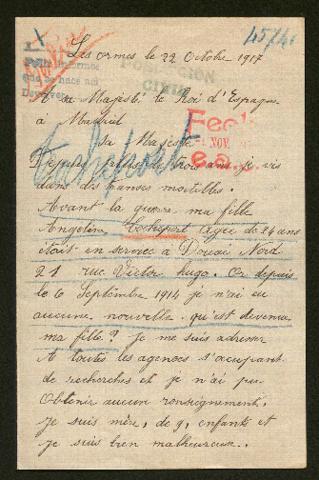 45/41
X
Les ormes le 22 Octobre 1917
POBLACIÓN
CIVIL
A sa Majesté le Roi d'Espagne
à Madrid
sa Majesté
Fech
NOV.
Depuis plus de trois ans je vis
dans des transes mortelles.
Avant la guerre ma fille
Angeline, âgée de 24 ans
était en service à Douai Nord
21 rue Victor hugo. Or depuis
le 6 Septembre 1914 je n'ai eu
aucune nouvelle. qu'est devenue
ma fille? Je me suis adresser
A toutes les agences s'occupant
de recherches et je n'ai pu
Obtenir aucun renseignement.
Je suis mère, de 9, enfants et
Je suis bien malheureuse..